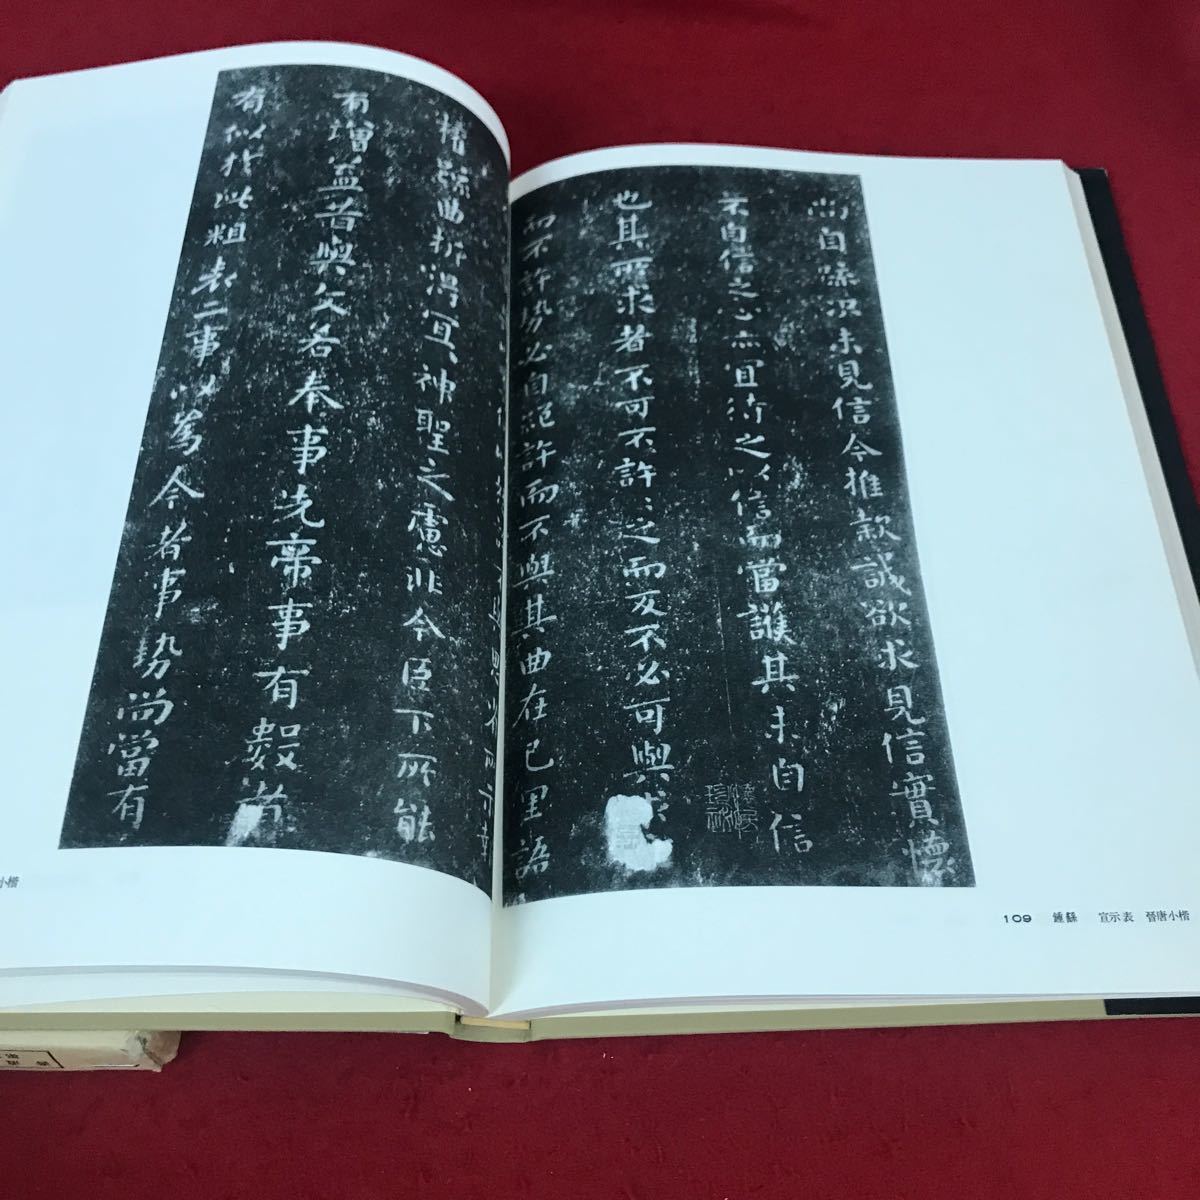 尚自疏況未見信今推款誠欲求見信實懷
不自信之心亦宜待之以信而當護其未自信
也其所求者不可不許許之而反不必可與求
而不許勢必自絕許而不與其曲在己里語
109 鍾繇 宣示表 晉唐小楷
思省所示報
權疏曲折得冝冝神聖之慮非今臣下所能
有增益昔與文若奉事先帝事有數者
有似於此粗表二事以為今者事勢尚當有
小楷